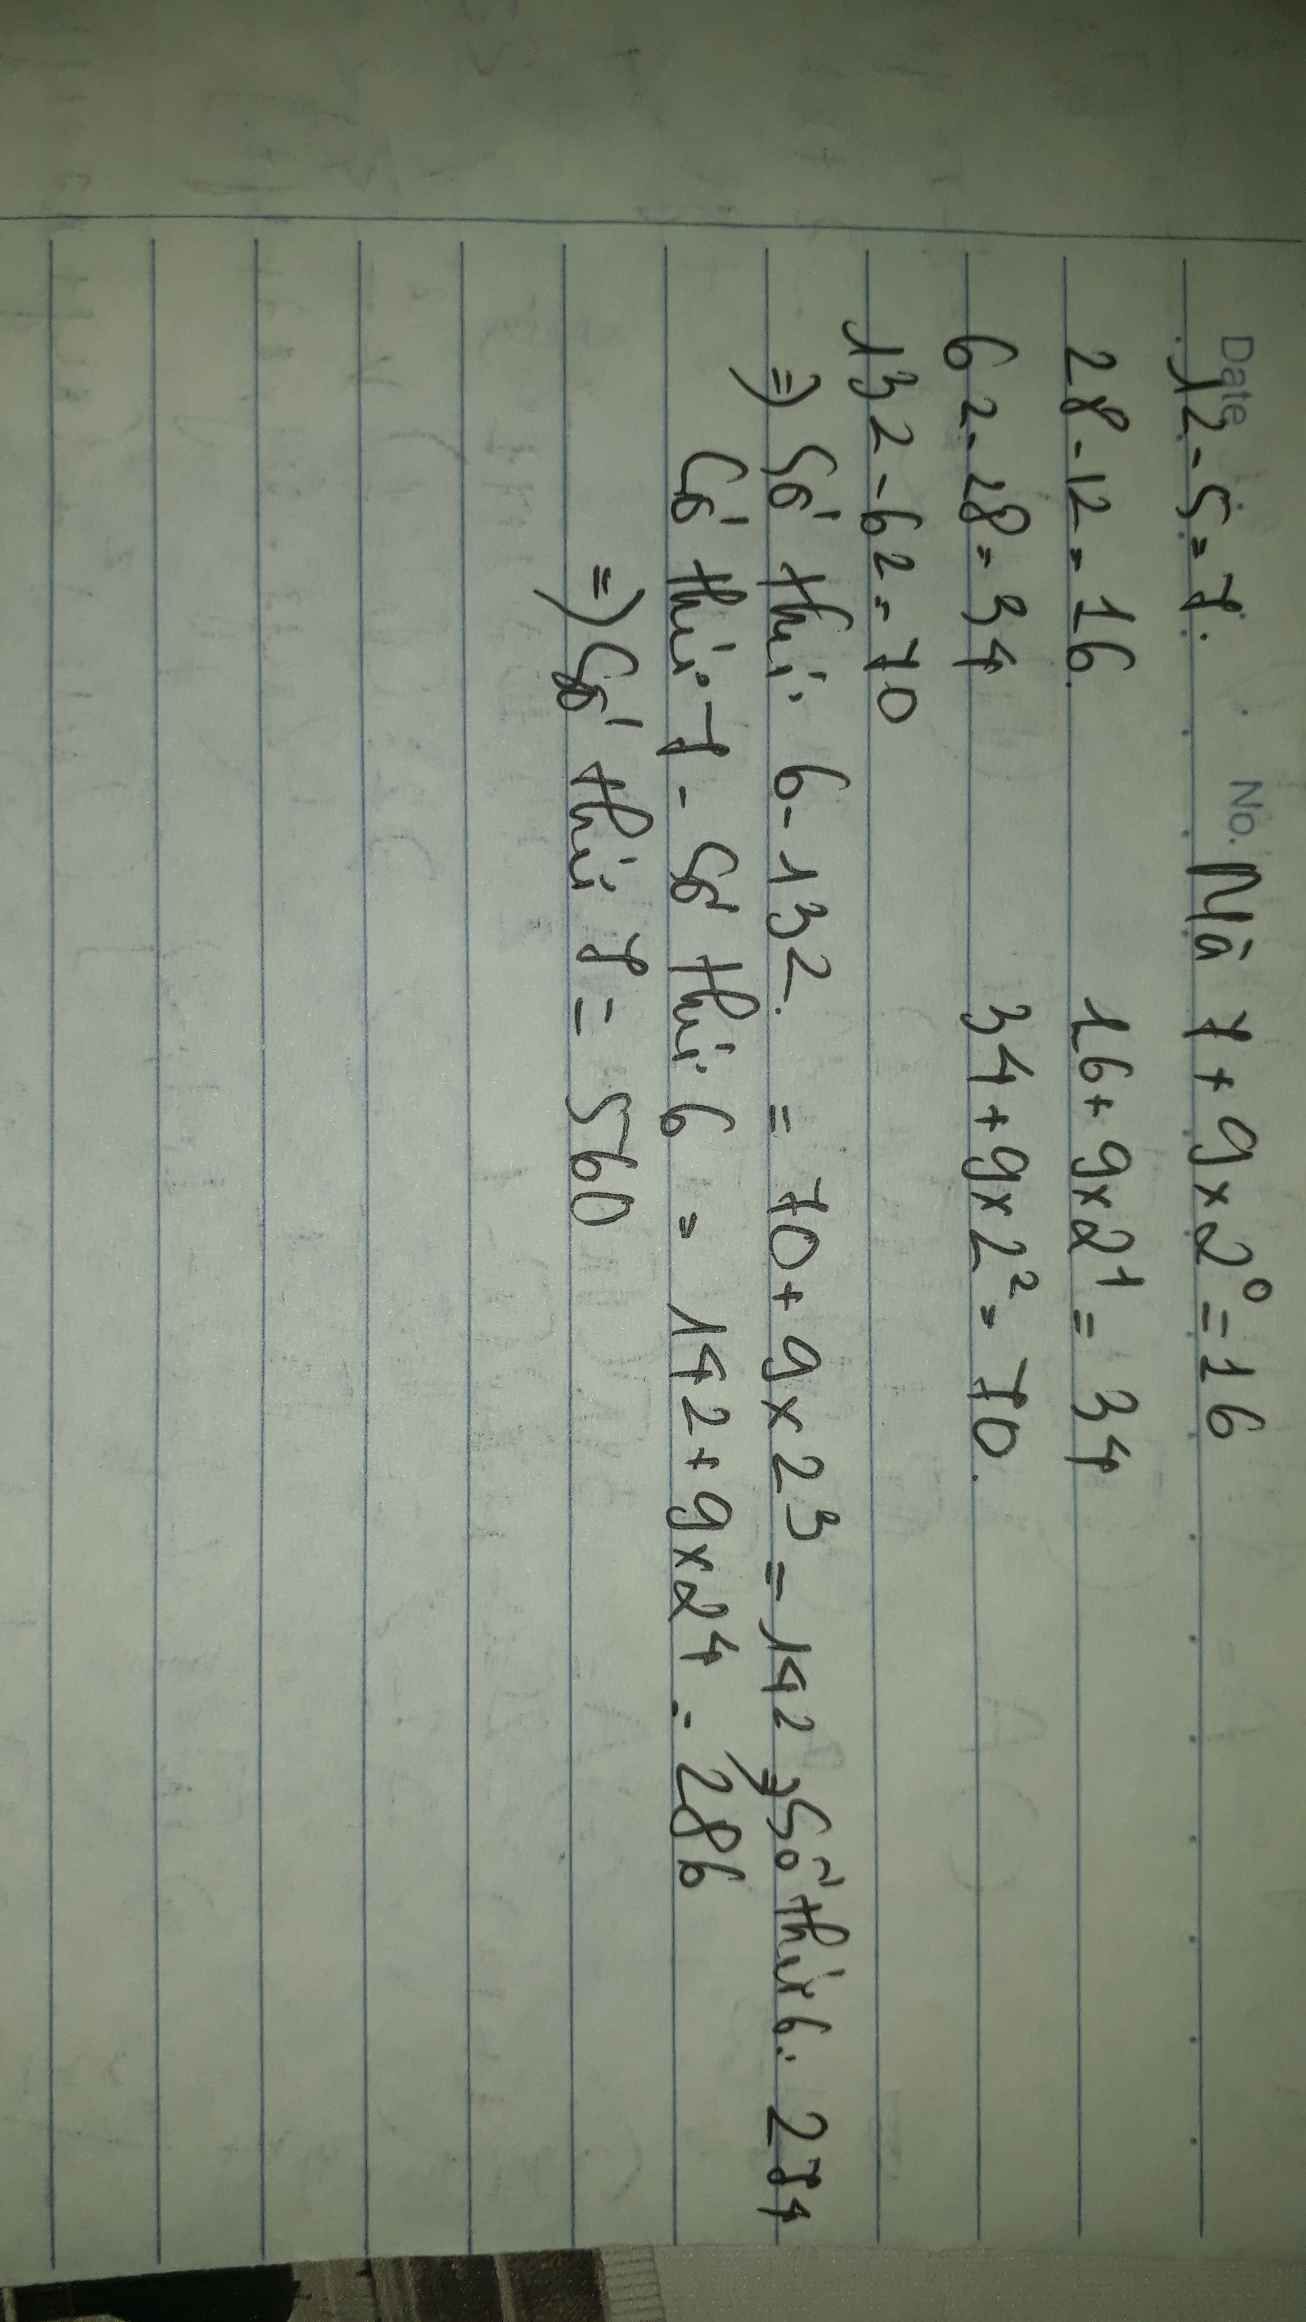 Date No.
12-5=7. Mà 7+9x2⁰=16
28-12=16. 16+9x2¹=34
62-28=34 34+9x2²=70.
132-62=70
=) Số thứ 6-132. = 70+9x2³=142 =) Số thứ 6: 274
Số thứ 7-Số thứ 6 = 142+9x2⁴=286
=) Số thứ 7=560